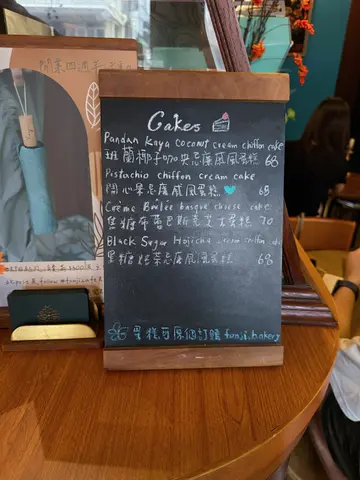 Cakes
Pandan Kaya Coconut cream chiffon cake
班蘭椰子咖央忌廉戚風蛋糕 68
Pistachio chiffon cream cake
開心果忌廉戚風蛋糕 68
Crème Brûlée basque cheese cake
焦糖布蕾巴斯克芝士蛋糕 70
Black Sugar Hojicha cream chiffon
黑糖焙茶忌廉風蛋糕 68
蛋糕可原個訂購 funji.bakery